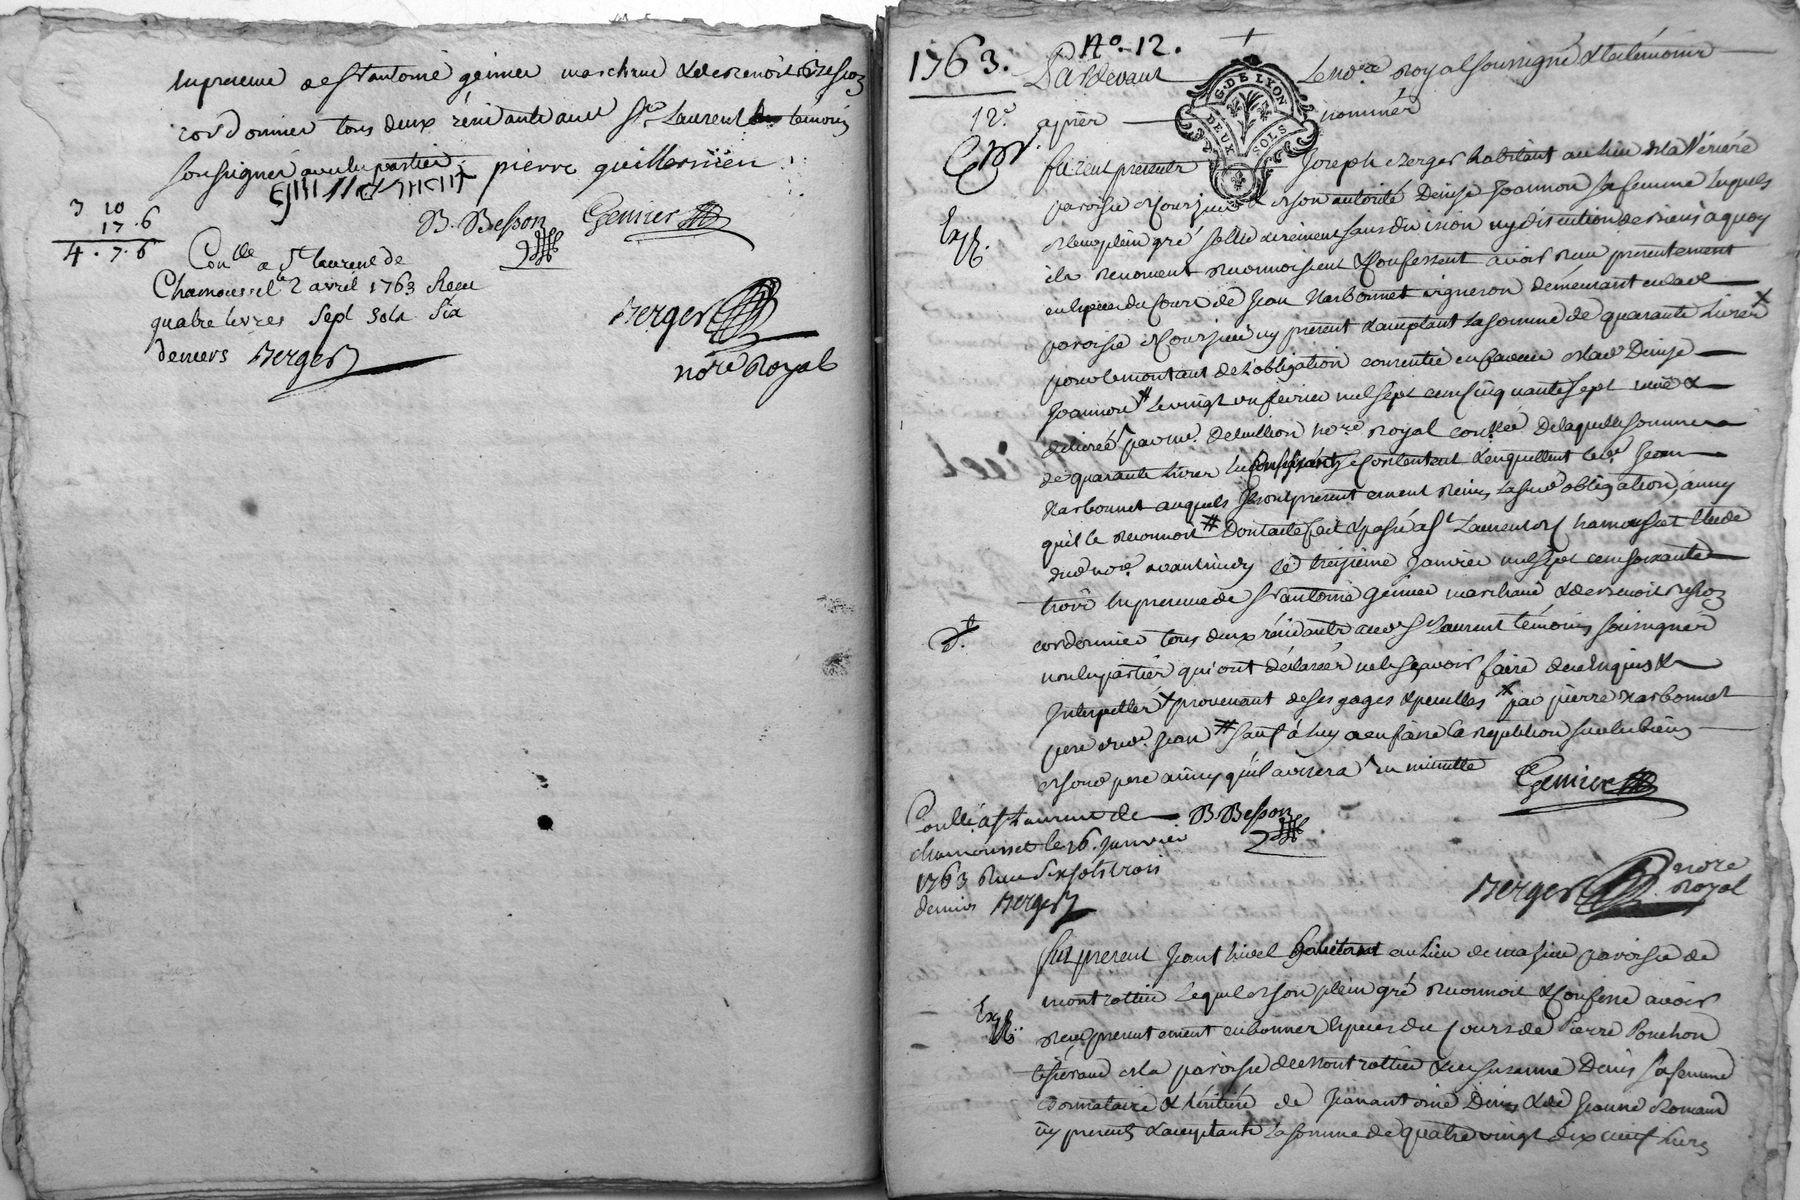 en presence de Sr antoine genier marchand & de benoit Besson
cordonnier tous deux résidants aud St Laurent témoins
soussignés avec les parties pierre guillermien
B. Besson Genier
3 10
17 . 6
4 . 7 . 6
Conllé a St laurent de
Chamousset le 2 avril 1763 Receu
quatre livres sept sols six
deniers Berger
Berger
nore Royal
No. 12.
1763.
Pardevant Le nore royal soussigné & les témoins
12e
après nommés
G. DE LYON
DEUX SOLS
furent presents Joseph Berger habitant au lieu de la Verière
paroisse de & de son autorité Denise Joannon sa femme lesquels
de leur plein gré solidairement sans division ny discution de biens a quoy
ils renoncent reconnoissent & confessent avoir receu presentement
en especes du cours de Jean Narbonnet vigneron demeurant en lad
paroisse de icy present & acceptant la somme de quarante livres
pour le montant de l'obligation consentie en faveur de lad Denise
Joannon le vingt un fevrier mil sept cent cinquante sept receue &
delivrée par me. nore royal conllée de laquelle somme
de quarante livres les confessants se contentent & en quittent led Jean
Narbonnet auquels ils ont presentement remis lad obligation, ainsy
qu'il le reconnoit # Dont acte fait & passé a St Laurent de Chamousset étude
dud nore avant midy le treizieme Janvier mil sept cent soixante
trois en presence de Sr antoine genier marchand & de benoit Besson
cordonnier tous deux résidants aud St Laurent témoins soussignés
non les parties qui ont déclarées ne le sçavoir faire de ce enquis &
Interpellés x provenant de ses gages & x par pierre Narbonnet
pere dud. Jean # sauf à luy a en faire la repetition sur les biens
de sond pere ainsy qu'il avisera en minutte
Genier
Conllé a St Laurent de B. Besson
chamousset le 16. Janvier
1763 Receu six sols trois
deniers Berger
Berger nore
Royal
fut present Jean habitant au lieu de paroisse de
montrottier lequel de son plein gré reconnoit & confesse avoir
receu presentement en bonnes especes du cours de Pierre Ponchon
tisserand de la paroisse de Montrottier & de Susanne Denis sa femme
donnataire & héritière de Jean antoine Denis & de Jeanne Romand
icy presents & acceptants la somme de quatre vingt dix neuf livres